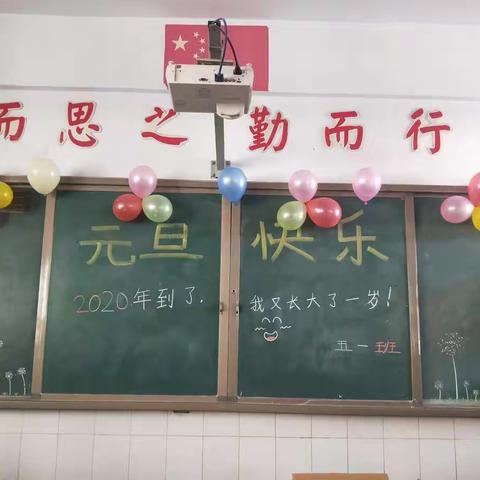 而思之勤而行
元旦 快乐
2020年到了.
我又长大了一岁!
五一班